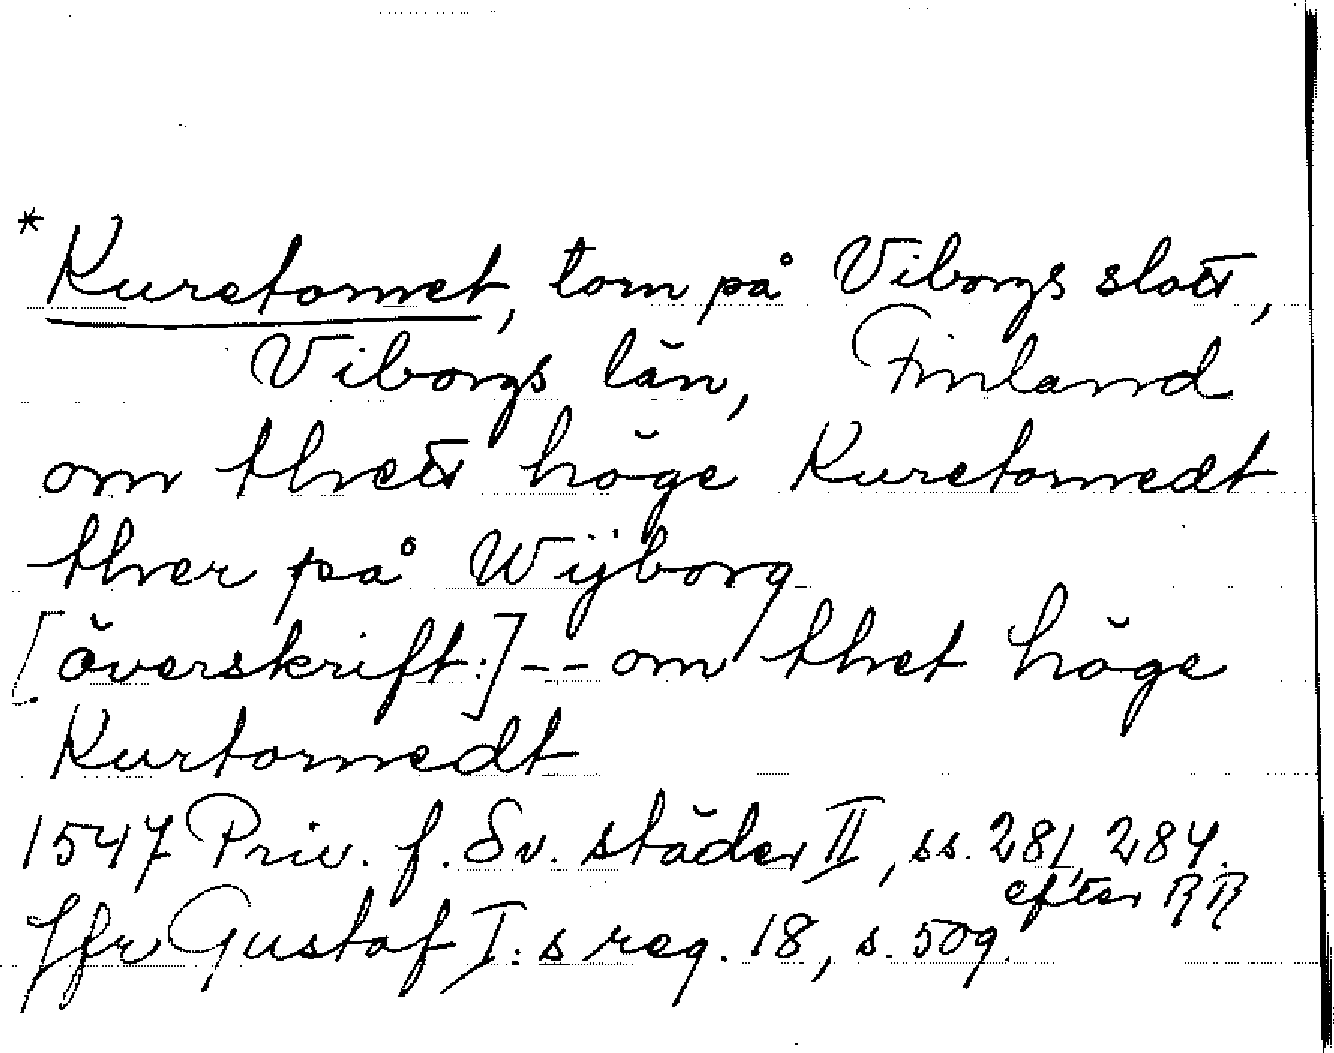 *Kuretornet, torn på Viborgs slott,
Viborgs län, Finland
om thett höge Kuretornedt
ther på Wijborg
[överskrift:] -- om thet höge
Kurtornedt
1547 Priv. f. Sv. städer II, ss. 281, 284.
efter RR
Jfr Gustaf I:s reg. 18, s. 509.